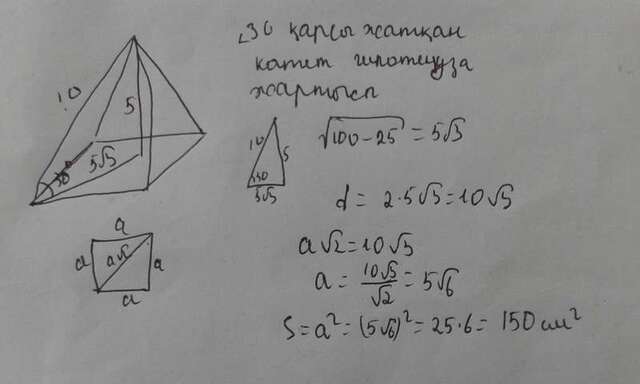 ∠30 қарсы жатқан
катет гипотенуза
жартысы
10
5
5√3
30°
10
5
30
5√3
√100-25 = 5√3
d = 2·5√3=10√3
a
a
a√2
a
a
a√2=10√3
a = 10√3/√2 = 5√6
S=a²=(5√6)²=25·6= 150 см²